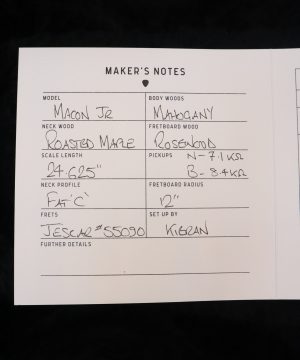 MAKER'S NOTES
MODEL
MACON JR
BODY WOODS
MAHOGANY
NECK WOOD
ROASTED MAPLE
FRETBOARD WOOD
ROSEWOOD
SCALE LENGTH
24.625"
PICKUPS
N - 7.1 KΩ
B - 8.4 KΩ
NECK PROFILE
FAT 'C'
FRETBOARD RADIUS
12"
FRETS
JESCAR #55090
SET UP BY
KIERAN
FURTHER DETAILS